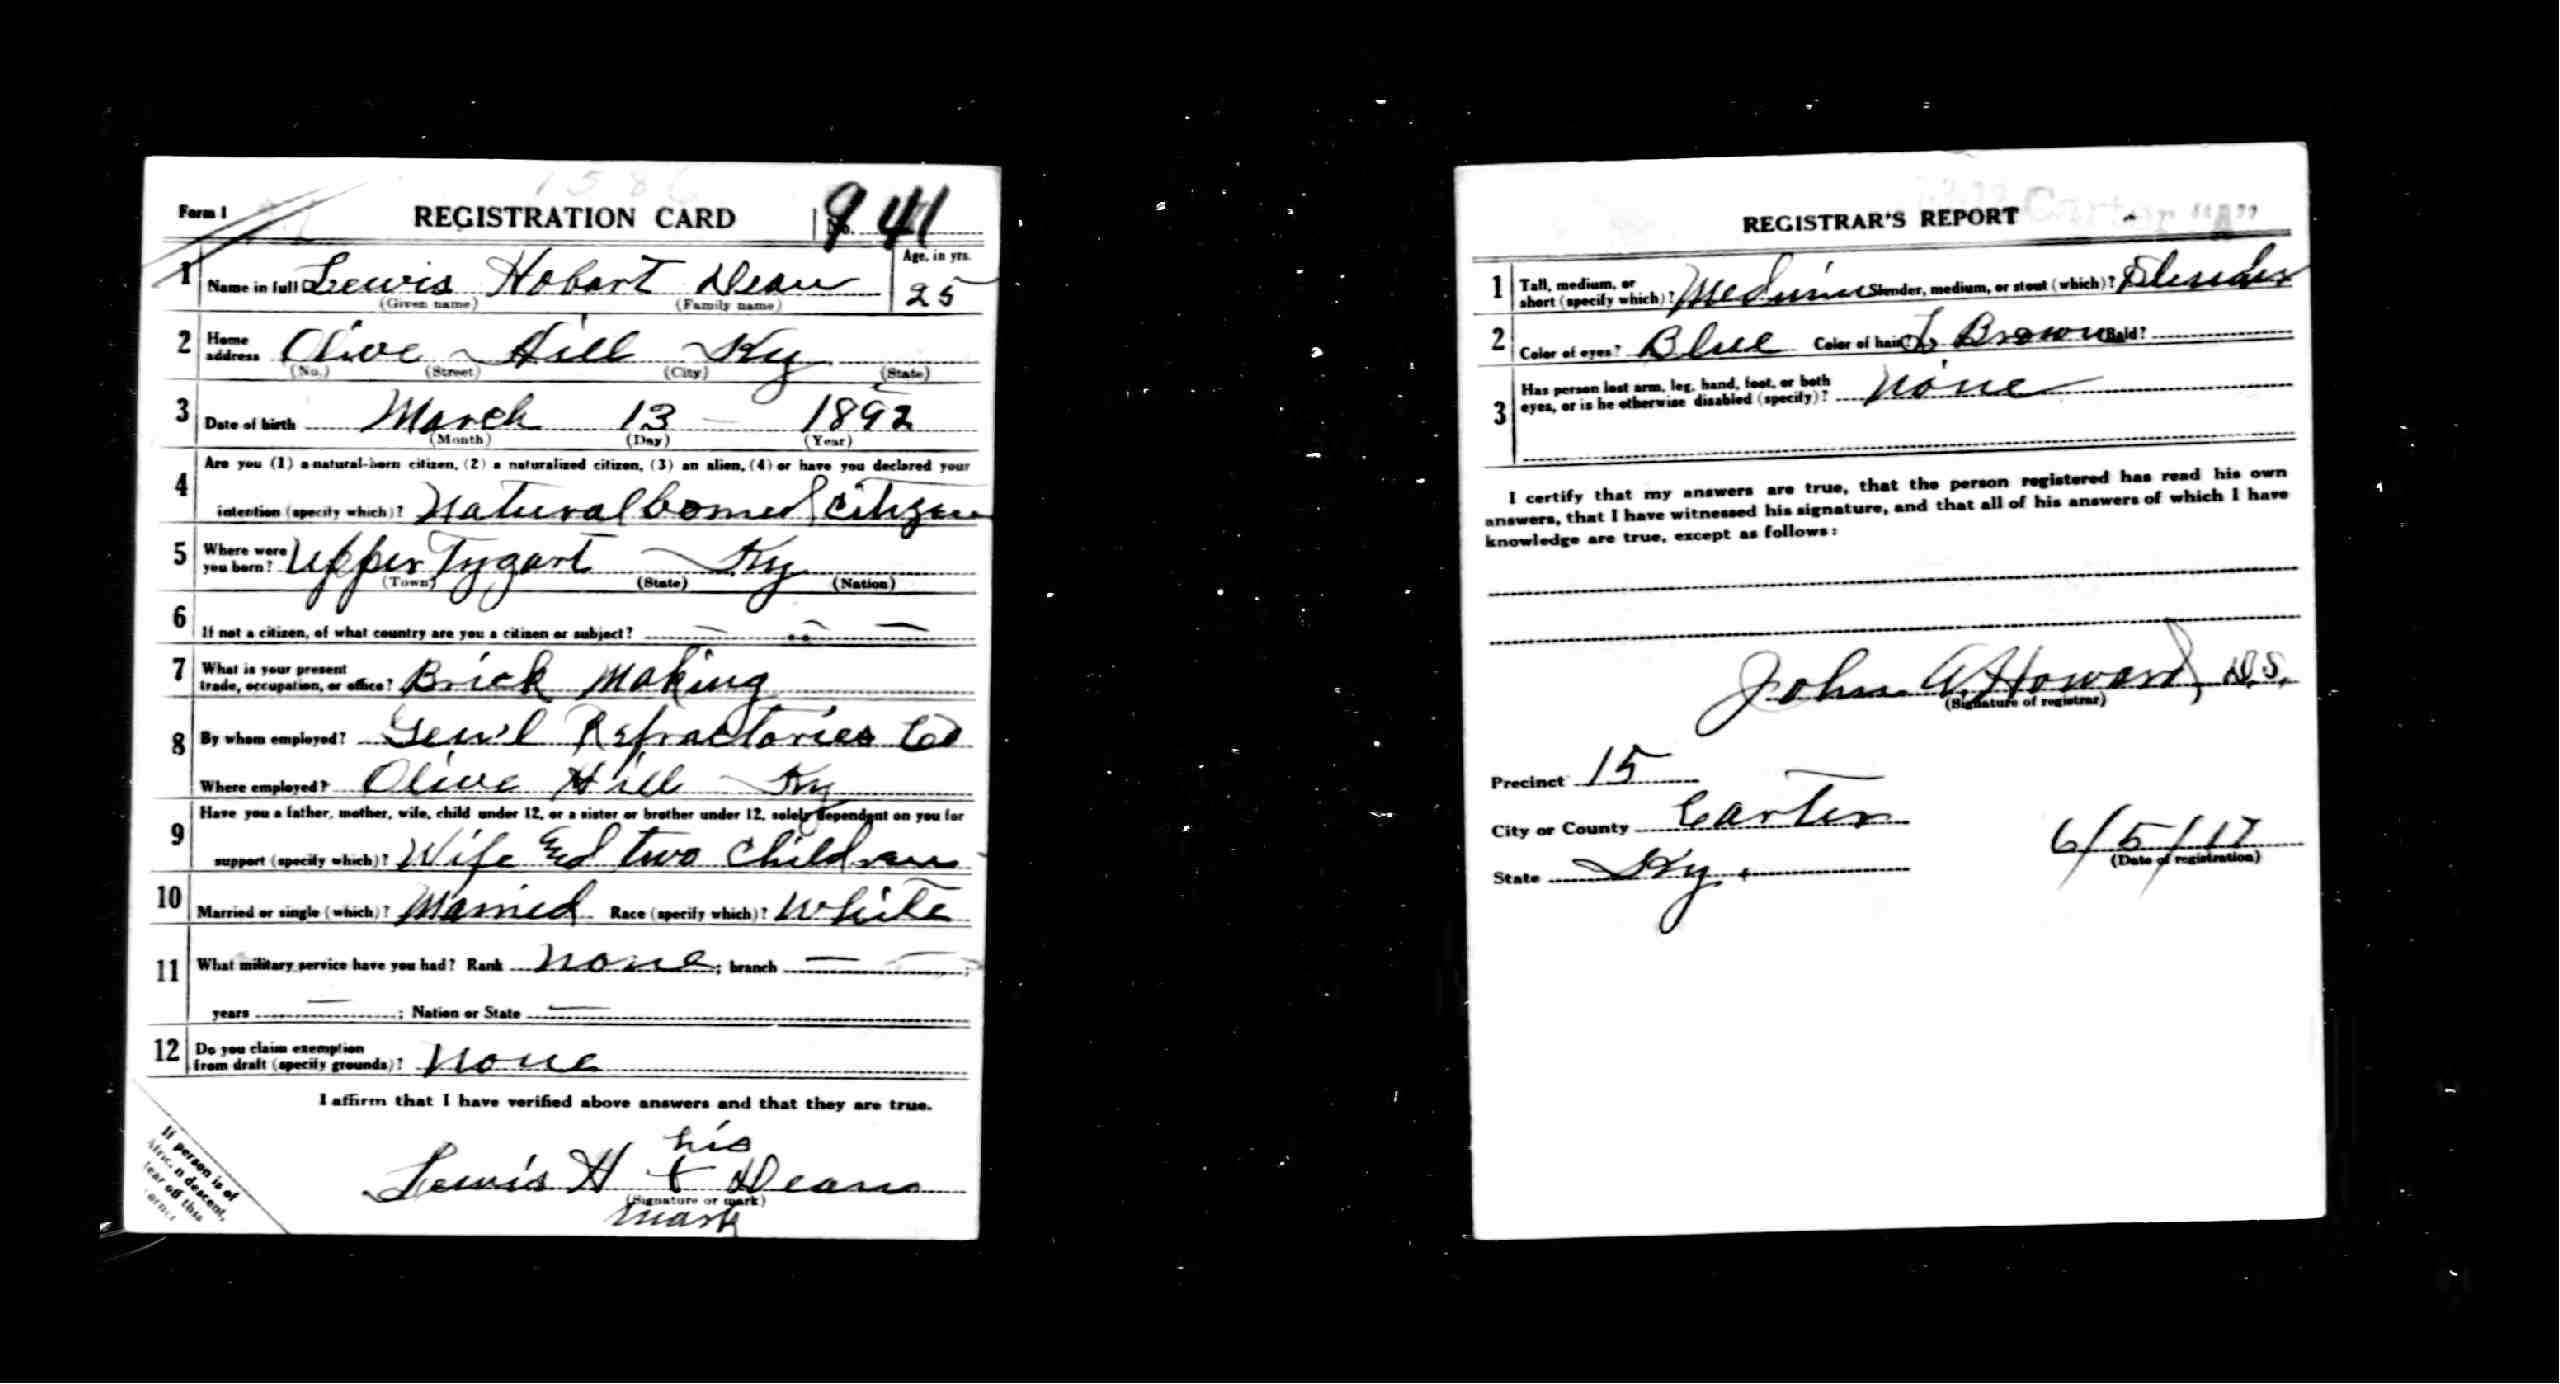 1586
Form 1 REGISTRATION CARD No. 941
1 Name in full Lewis Hobart Dean Age, in yrs. 25
(Given name) (Family name)
2 Home address Olive Hill Ky
(No.) (Street) (City) (State)
3 Date of birth March 13 1892
(Month) (Day) (Year)
4 Are you (1) a natural-born citizen, (2) a naturalized citizen, (3) an alien, (4) or have you declared your
intention (specify which)? Natural borned citizen
5 Where were you born? Upper Tygart Ky
(Town) (State) (Nation)
6 If not a citizen, of what country are you a citizen or subject?
7 What is your present
trade, occupation, or office? Brick Making
8 By whom employed? Gen'l Refractories Co
Where employed? Olive Hill Ky
9 Have you a father, mother, wife, child under 12, or a sister or brother under 12, solely dependent on you for
support (specify which)? Wife End two Children
10 Married or single (which)? Married Race (specify which)? White
11 What military service have you had? Rank none; branch —;
years —; Nation or State —
12 Do you claim exemption
from draft (specify grounds)? none
I affirm that I have verified above answers and that they are true.
his
Lewis H + Dean
(Signature or mark)
mark
If person is of
African descent,
tear off this
corner
REGISTRAR'S REPORT
Carter "A"
1 Tall, medium, or
short (specify which)? Medium Slender, medium, or stout (which)? Slender
2 Color of eyes? Blue Color of hair? L Brown Bald?
3 Has person lost arm, leg, hand, foot, or both
eyes, or is he otherwise disabled (specify)? none
I certify that my answers are true, that the person registered has read his own
answers, that I have witnessed his signature, and that all of his answers of which I have
knowledge are true, except as follows:
John A. Howard, D.S.
(Signature of registrar)
Precinct 15
City or County Carter
State Ky.
6/5/17
(Date of registration)